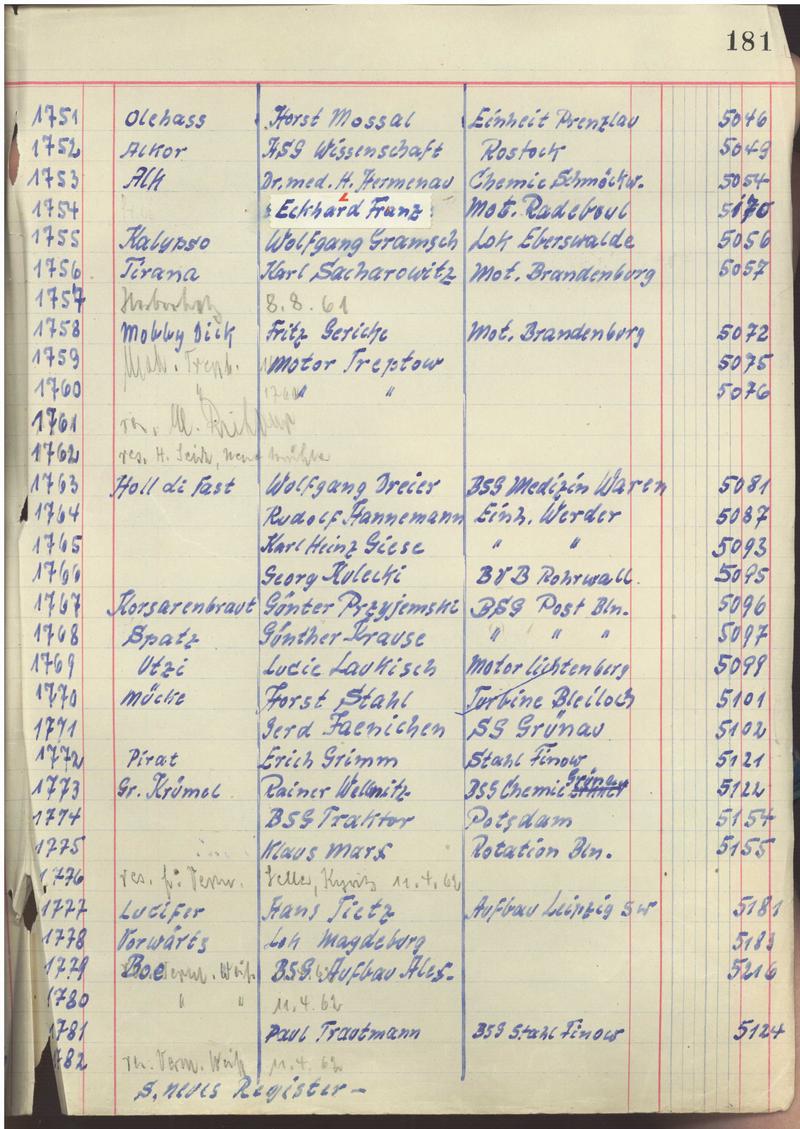 181
1751 Olehass Horst Mossal Einheit Prenzlau 5046
1752 Alkor HSG Wissenschaft Rostock 5049
1753 Alk Dr. med. H. Hermenau Chemie Schmöckw. 5054
1754 Eckhard Franz Mot. Radebeul 5170
1755 Kalypso Wolfgang Gramsch Lok Eberswalde 5056
1756 Tirana Karl Sacharowitz Mot. Brandenburg 5057
1757 8.8.61
1758 Mobby Dick Fritz Gericke Mot. Brandenburg 5072
1759 Mot. Trept. Motor Treptow 5075
1760 " " 5076
1761
1762 res. H.
1763 Holl di fast Wolfgang Dreier BSG Medizin Waren 5081
1764 Rudolf Hannemann Einh. Werder 5087
1765 Karl Heinz Giese " " 5093
1766 Georg Kulecki BVB Rohrwall 5095
1767 Korsarenbraut Günter Przyjemski BSG Post Bln. 5096
1768 Spatz Günther Krause " " " 5097
1769 Utzi Lucie Laukisch Motor Lichtenberg 5099
1770 Mücke Horst Stahl Turbine Bleiloch 5101
1771 Gerd Faenichen SG Grünau 5102
1772 Pirat Erich Grimm Stahl Finow 5121
1773 Gr. Krümel Rainer Wellnitz BSG Chemie Grünau 5122
1774 BSG Traktor Potsdam 5154
1775 Klaus Marx Rotation Bln. 5155
1776 res. f. Kyritz 11.4.62
1777 Lucifer Hans Tietz Aufbau Leipzig SW 5181
1778 Vorwärts Lok Magdeburg 5183
1779 Boe BSG Aufbau Ales. 5216
1780 " " 11.4.62
1781 Paul Trautmann BSG Stahl Finow 5124
782 res. Verm. Weiß 11.4.62
s. neues Register –